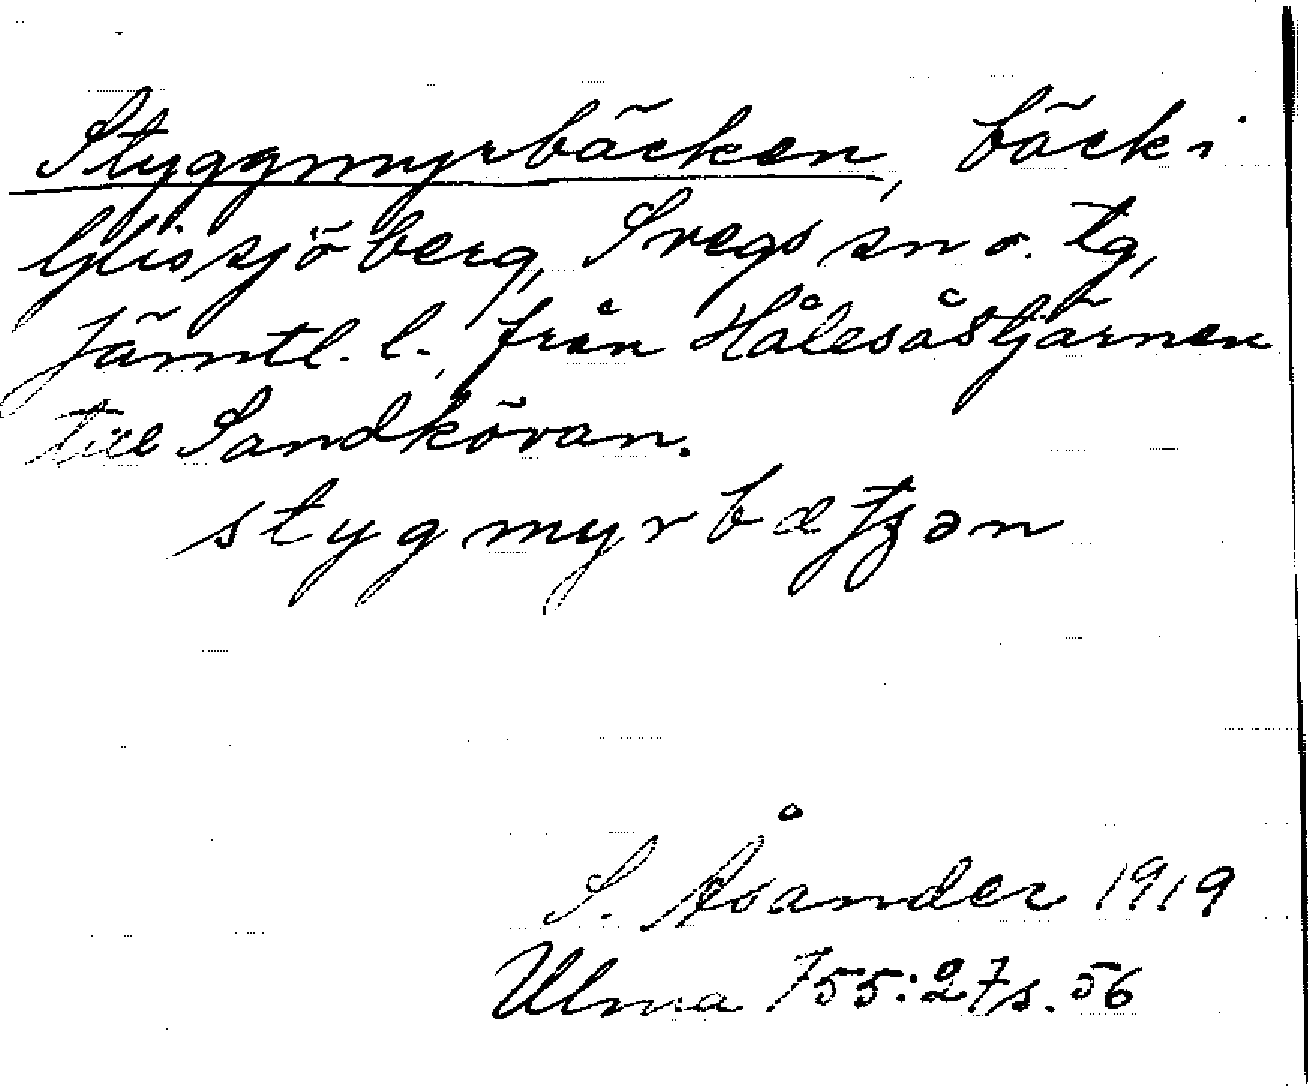 Styggmyrbäcken, bäck i
Glissjöberg, Svegs sn o. tg,
Jämtl. l., från Hålesåstjärnen
till Sandkövan.
stygmyrbæ
S. Åsander 1919
Ulma 755:27 s. 56